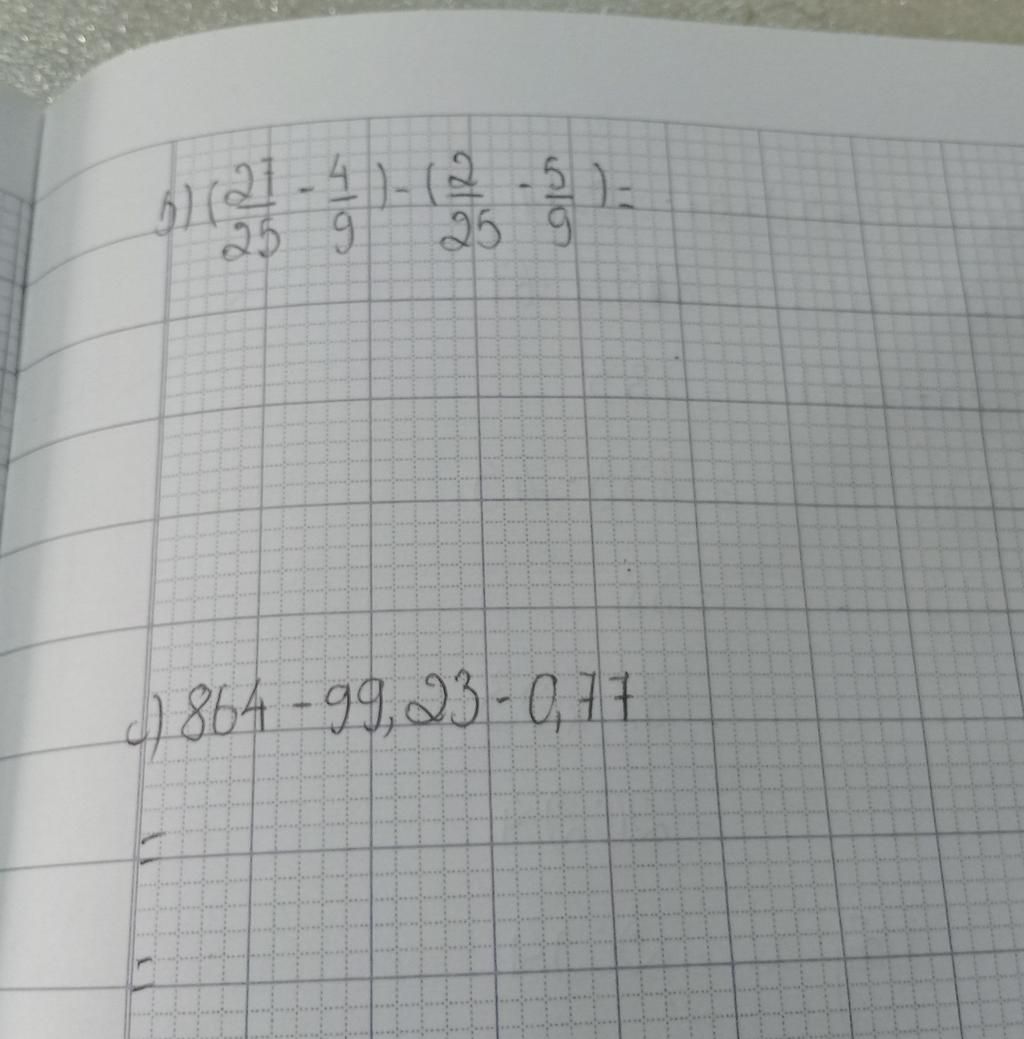 b) (27/25 - 4/9) - (2/25 - 5/9) =
c) 864 - 99,23 - 0,77
=
=